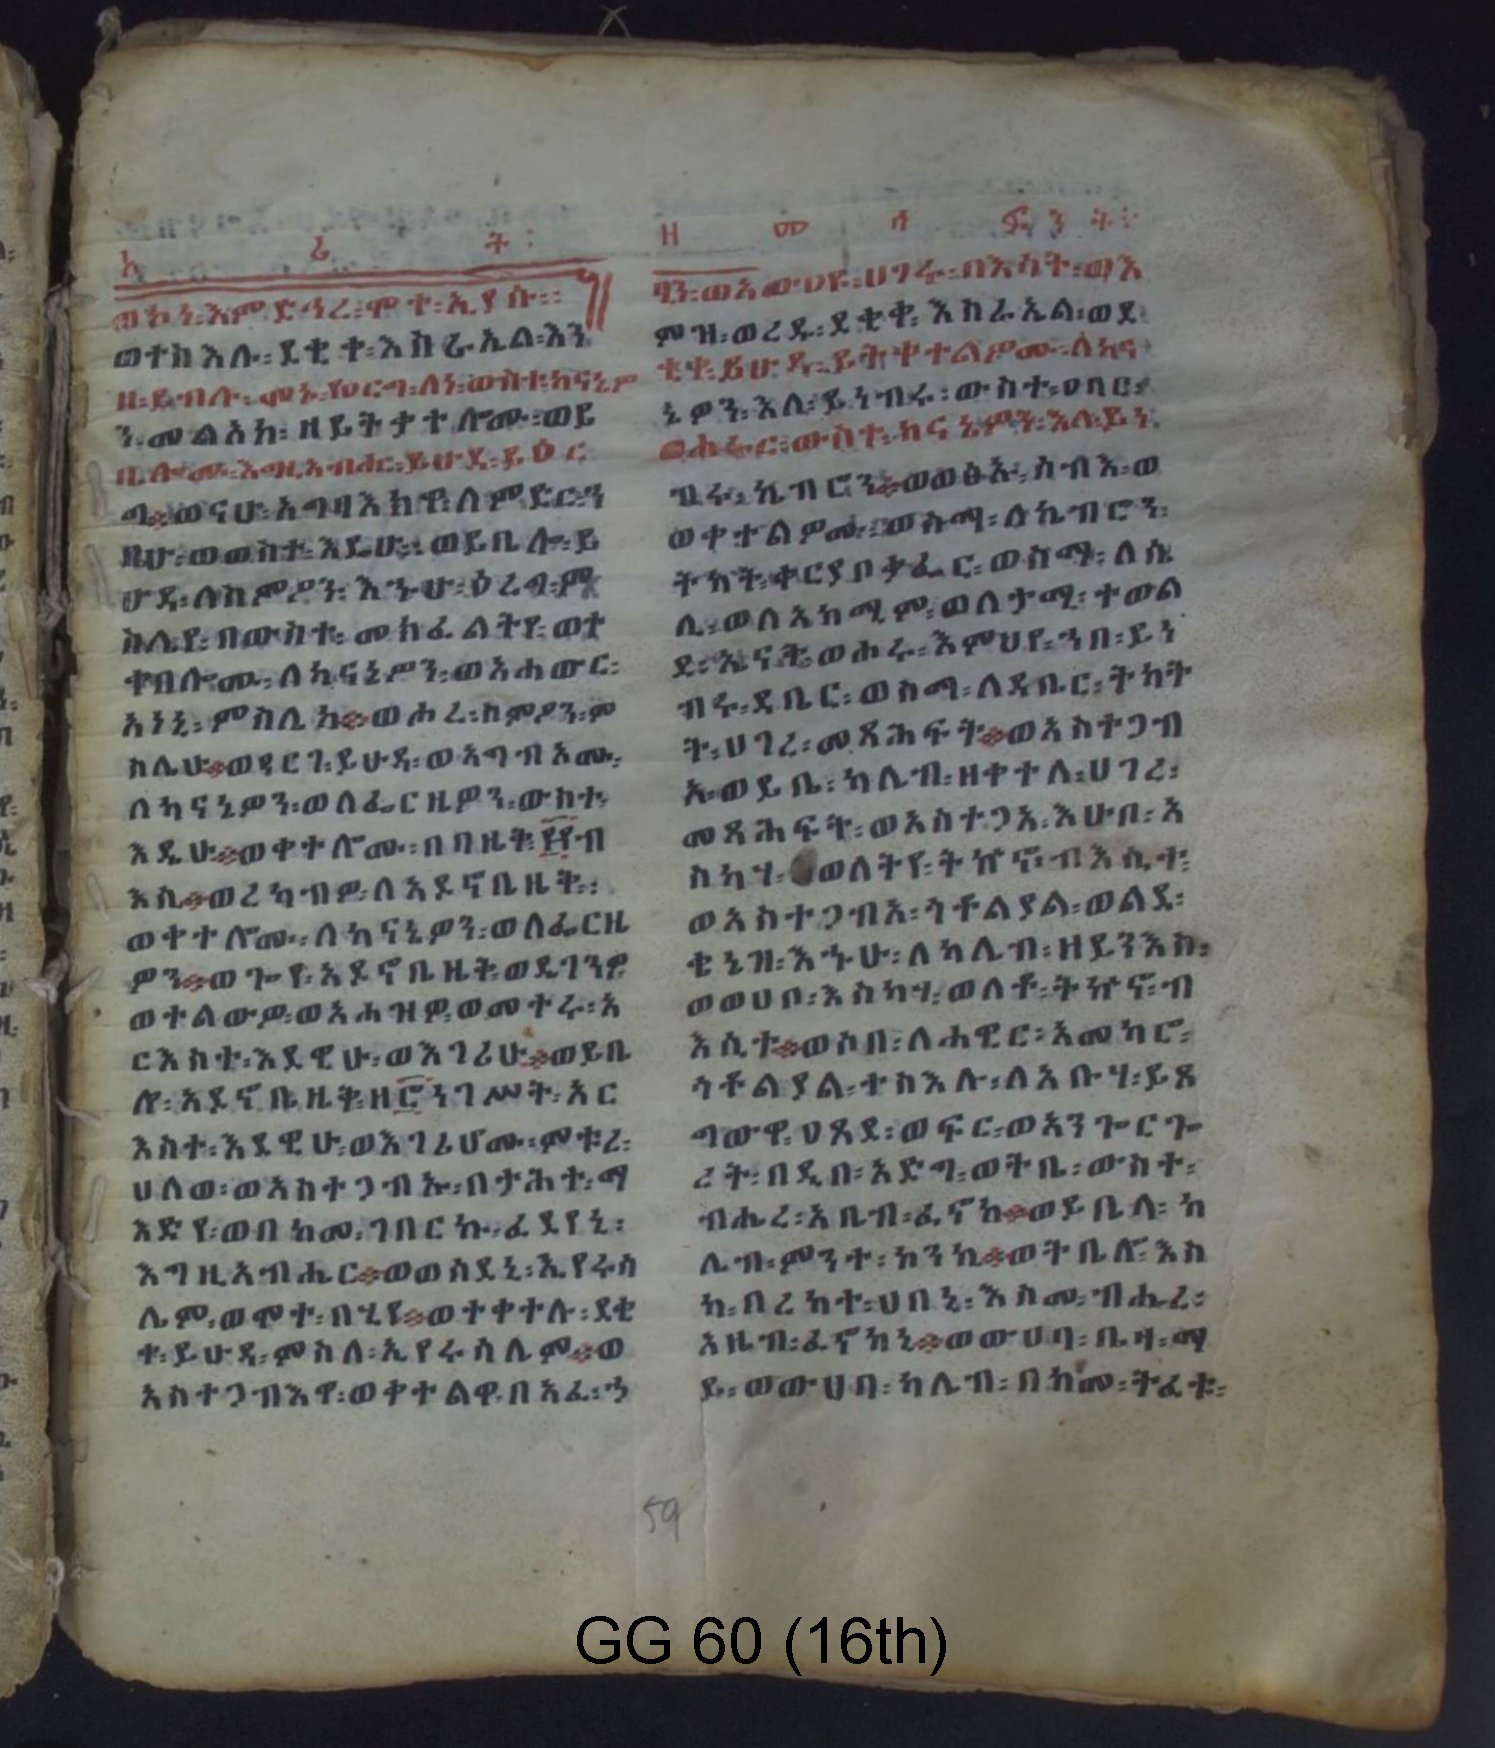 ኦ ሪ ት ፡ ዘ መ ሳ ፍ ን ት ፡
ወኮነ፡እምድኅረ፡ሞተ፡ኢያሱ፡፡
ወተስእሉ፡ደቂቀ፡እስራኤል፡እን
ዘ፡ይብሉ፡መኑ፡የዐርግ፡ለነ፡ውስተ፡ከናኔዎ
ን፡መልአከ፡ዘይትቃተሎሙ፡ወይ
ቤሎሙ፡እግዚአብሔር፡ይሁዳ፡ይዕር
ግ፡ወናሁ፡አግባእክዋ፡ለምድር፡ን
ዛሁ፡ወውስተ፡እዴሁ፡ወይቤሎ፡ይ
ሁዳ፡ለስምዖን፡እኁሁ፡ዕረግ፡ም
ስሌየ፡በውስተ፡መክፈልትየ፡ወት
ቀበሎሙ፡ለካናኔዎን፡ወአሐውር፡
አነኒ፡ምስሌከ፡ወሖረ፡ስምዖን፡ም
ስሌሁ፡ወዓርገ፡ይሁዳ፡ወአግብኦሙ፡
ለካናኔዎን፡ወለፌርዜዎን፡ውስተ፡
እዴሁ፡ወቀተሎሙ፡በቤዜቅ፡፼ብ
እሲ፡ወረካብዎ፡ለአዶኖቤዜቅ፡
ወቀተሎሙ፡ለካናኔዎን፡ወለፌርዜ
ዎን፡ወጐየ፡አዶኖቤዜቅ፡ወዴገንዎ
ወተልውዎ፡ወአሐዝዎ፡ወመተሩ፡አ
ርእስተ፡እደዊሁ፡ወእገሪሁ፡ወይቤ
ሎ፡አዶኖቤዜቅ፡ዘ፸ነገሥት፡አር
እስተ፡እደዊሁ፡ወእገሪሆሙ፡ምቱረ፡
ሀለወ፡ወአስተጋብኡ፡በታሕተ፡ማ
እድየ፡ወበከመ፡ገበርኩ፡ፈደየኒ፡
እግዚአብሔር፡ወወሰደኒ፡ኢየሩሳ
ሌም፡ወሞተ፡በሂየ፡ወተቀተሉ፡ደቂ
ቀ፡ይሁዳ፡ምስለ፡ኢየሩሳሌም፡ወ
አስተጋብእዋ፡ወቀተልዋ፡በአፈ፡ኀ
ፂን፡ወአውዐየ፡ሀገሩ፡በእሳት፡ወእ
ምዝ፡ወረዱ፡ደቂቀ፡እስራኤል፡ወደ
ቂቀ፡ይሁዳ፡ይትቀተልዎሙ፡ለከና
ኔዎን፡እለ፡ይነብሩ፡ውስተ፡ዐባር፡
ወሖሩ፡ውስተ፡ከናኔዎን፡እለ፡ይነ
ብሩ፡ኬብሮን፡ወወፅኡ፡ሰብእ፡ወ
ወቀተልዎሙ፡ወስማ፡ለኬብሮን፡
ትካት፡ቀርያቦቃፌር፡ወስማ፡ለሴ
ሲ፡ወለአከሚም፡ወለታሚ፡ተወል
ደ፡ኤናቅ፡ወሖሩ፡እምህየ፡ኀበ፡ይነ
ብሩ፡ዳቤር፡ወስማ፡ለዳቤር፡ትካት
ት፡ሀገረ፡መጻሕፍት፡ወአስተጋብ
ኡ፡ወይቤ፡ካሌብ፡ዘቀተለ፡ሀገረ፡
መጻሕፍት፡ወአስተጋአ፡እሁቦ፡አ
ስካሃ፡ወለትየ፡ትኵኖ፡ብእሲተ፡
ወአስተጋብአ፡ጎቶልያል፡ወልደ፡
ቄኔዝ፡እኁሁ፡ለካሌብ፡ዘይንእስ፡
ወወሀቦ፡አስካሃ፡ወለቶ፡ትኵኖ፡ብ
እሲተ፡ወሶበ፡ለሐዊር፡አመካሮ፡
ጎቶልያል፡ተስእሉ፡ለአቡሃ፡ይጸ
ግውዋ፡ዐጸደ፡ወፍር፡ወአንጐርጐ
ረት፡በዲበ፡አድግ፡ወትቤ፡ውስተ፡
ብሔረ፡አቤብ፡ፈኖከ፡ወይቤላ፡ካ
ሌብ፡ምንተ፡ኮንኪ፡ወትቤሎ፡እስ
ከ፡በረካተ፡ሀበኒ፡እስመ፡ብሔረ፡
አዜብ፡ፈኖካኒ፡ወውሀባ፡ቤዛ፡ማ
ይ፡ወውህባ፡ካሌብ፡በከመ፡ትፈቱ፡
59
GG 60 (16th)